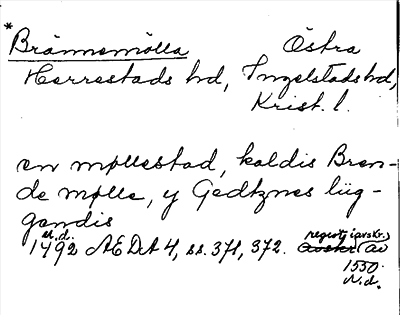 * Brännemölla Östra
Herrestads hd, Ingelstads hd,
Krist. l.
en møllestad, kaldis Bren-
de mølle, y Gedtznes liig-
gendis
u.d.
1492 AEDA 4, ss. 371, 372. regest (avskr.)
av
1550
N.d.